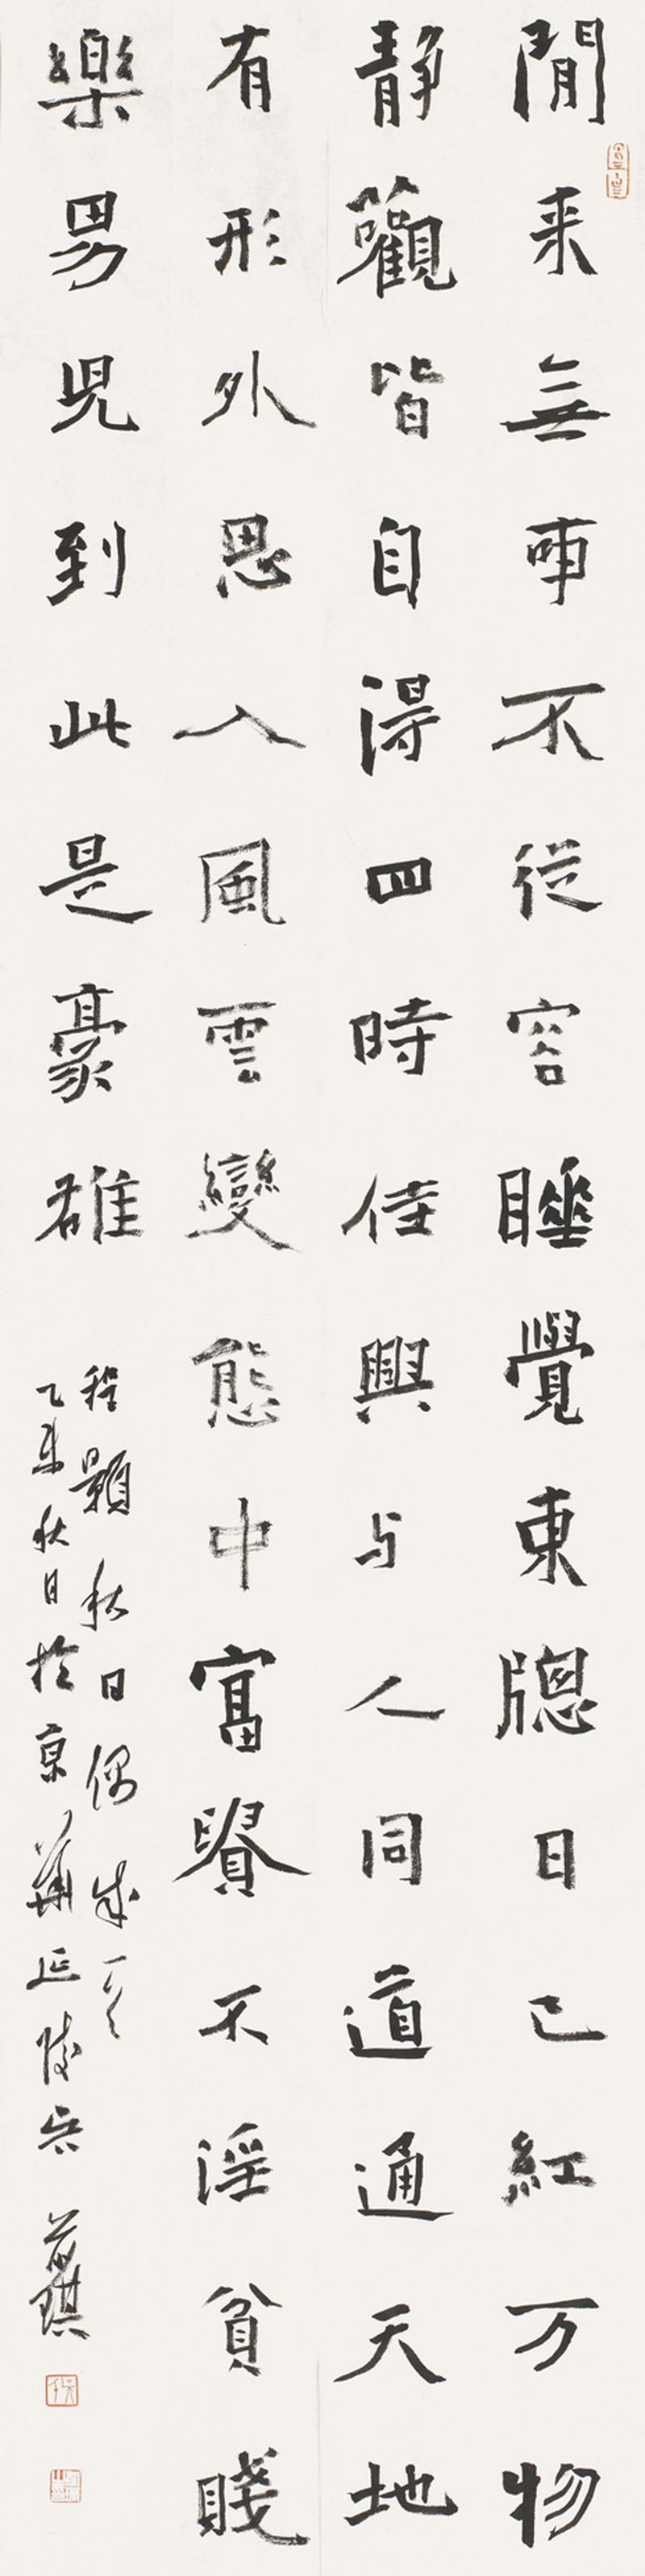 閒来無事不従容睡覺東牕日已紅万物
静觀皆自得四時佳興与人同道通天地
有形外思入風雲變態中富貴不淫貧賤
樂男兒到此是豪雄
程顥秋日偶成一首
乙未秋日於京華延陵吴